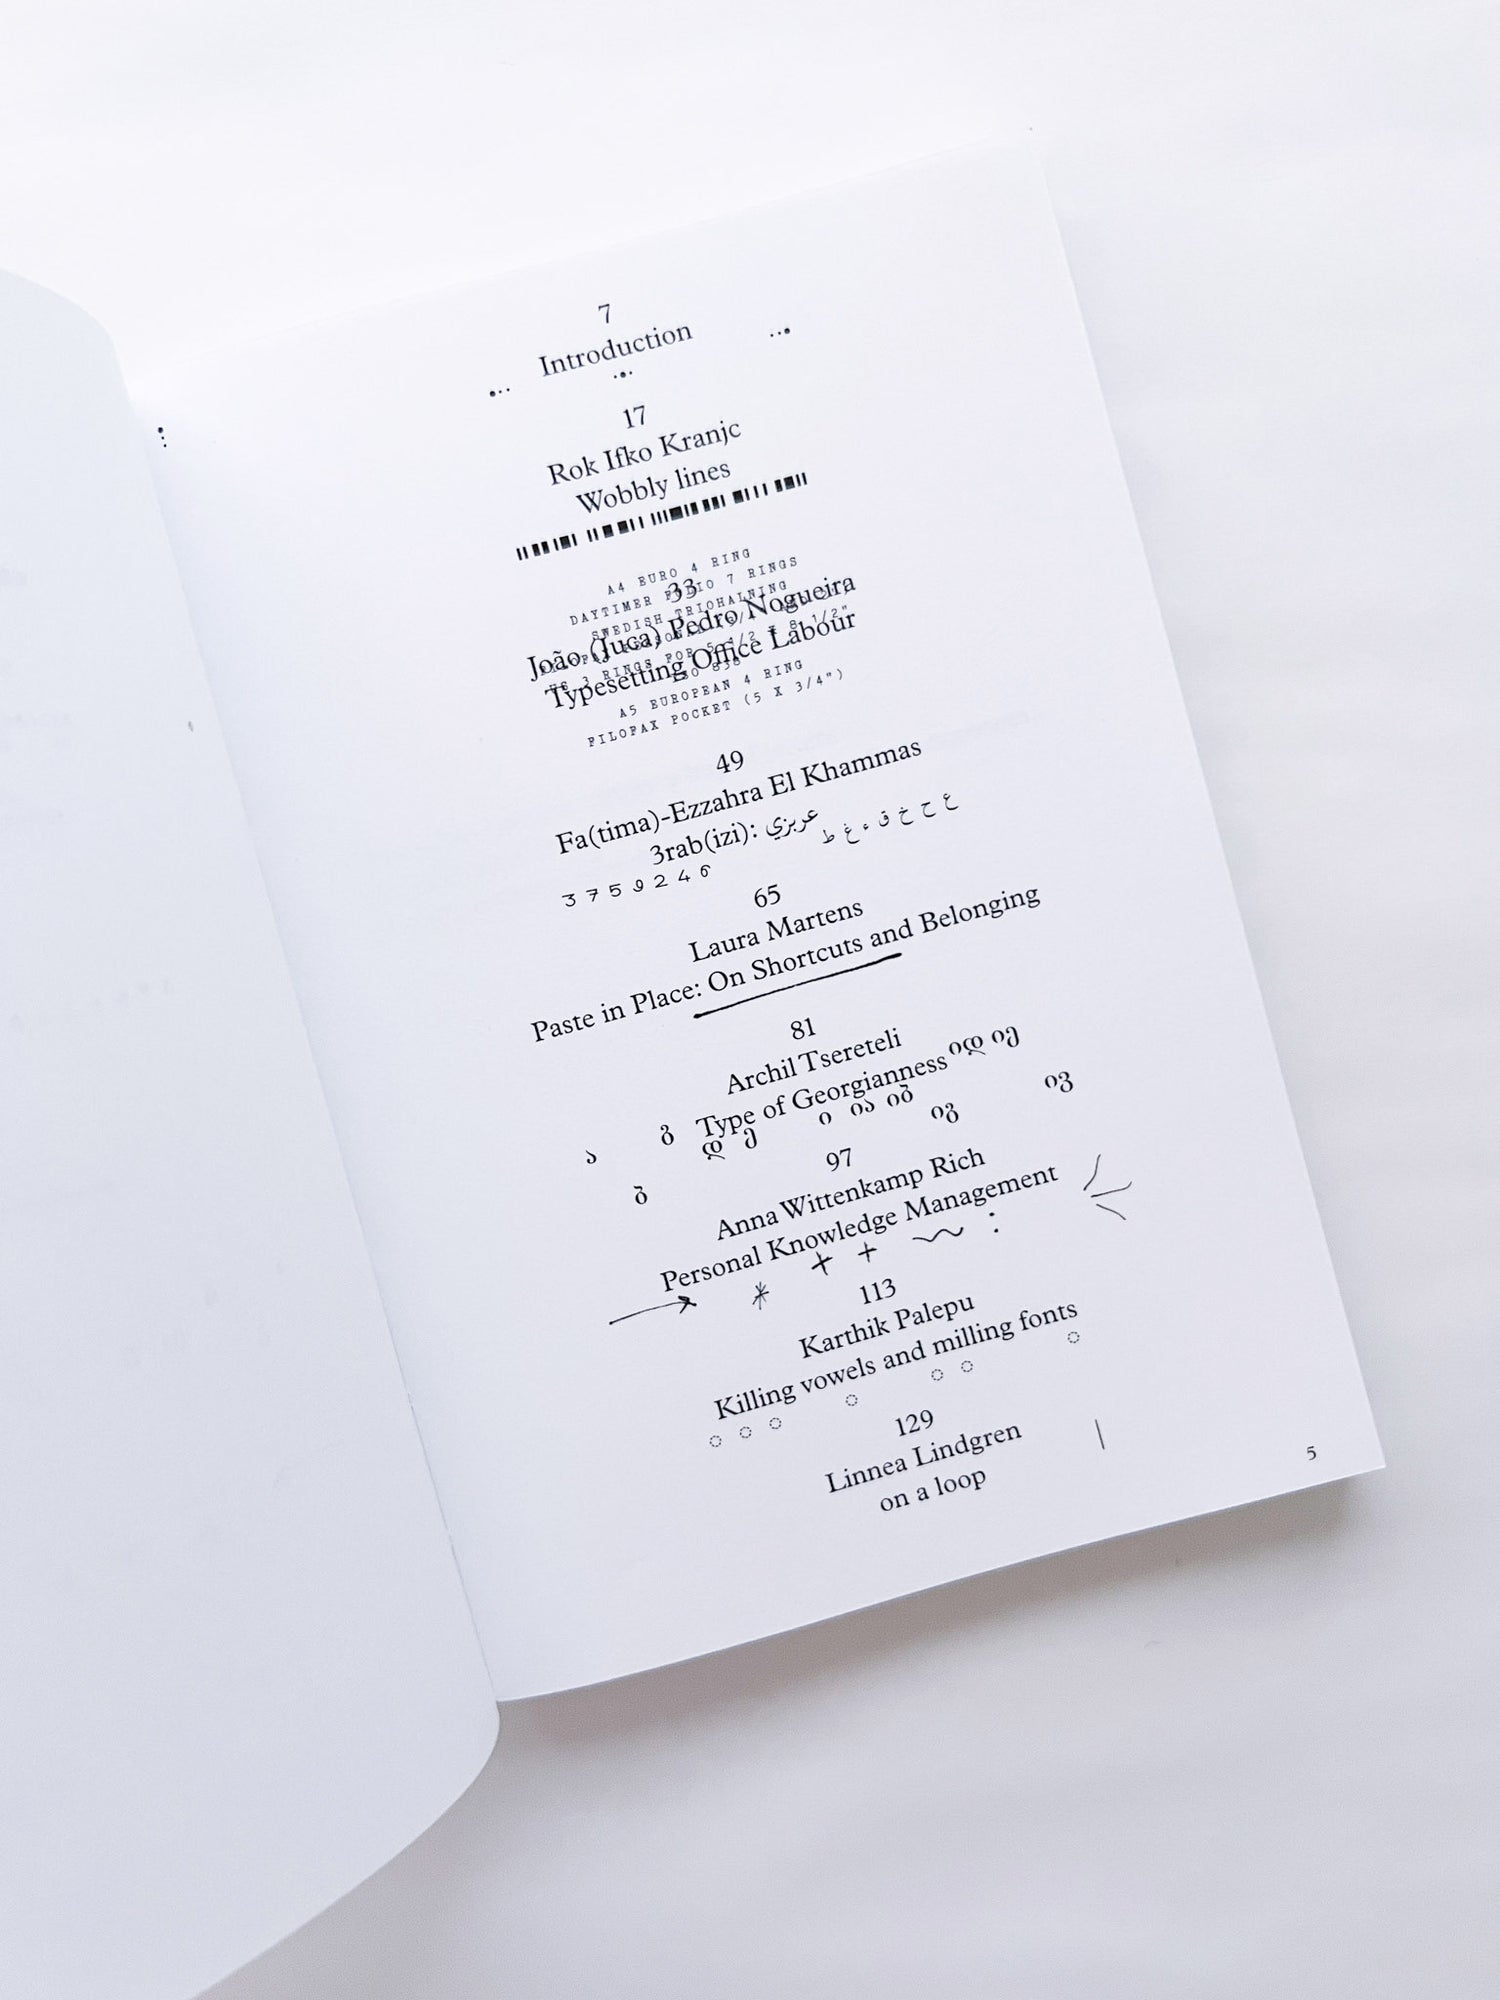 7
Introduction
17
Rok Ifko Kranjc
Wobbly lines
A4 EURO 4 RING
33
DAYTIMER FOLIO 7 RINGS
SWEDISH TRIOHALNING
João (Juca) Pedro Nogueira
3 RINGS FOR 5 1/2 X 8 1/2"
Typesetting Office Labour
ISO 838
A5 EUROPEAN 4 RING
FILOFAX POCKET (5 X 3/4")
49
Fa(tima)-Ezzahra El Khammas
3rab(izi): عربيزي
ع ح خ ق ء غ ط
3 7 5 9 2 4 6
65
Laura Martens
Paste in Place: On Shortcuts and Belonging
81
Archil Tsereteli
Type of Georgianness
იდ იე
ა გ დ ე ი ია იბ იგ ივ
ბ
97
Anna Wittenkamp Rich
Personal Knowledge Management
113
Karthik Palepu
Killing vowels and milling fonts
129
Linnea Lindgren
on a loop
5